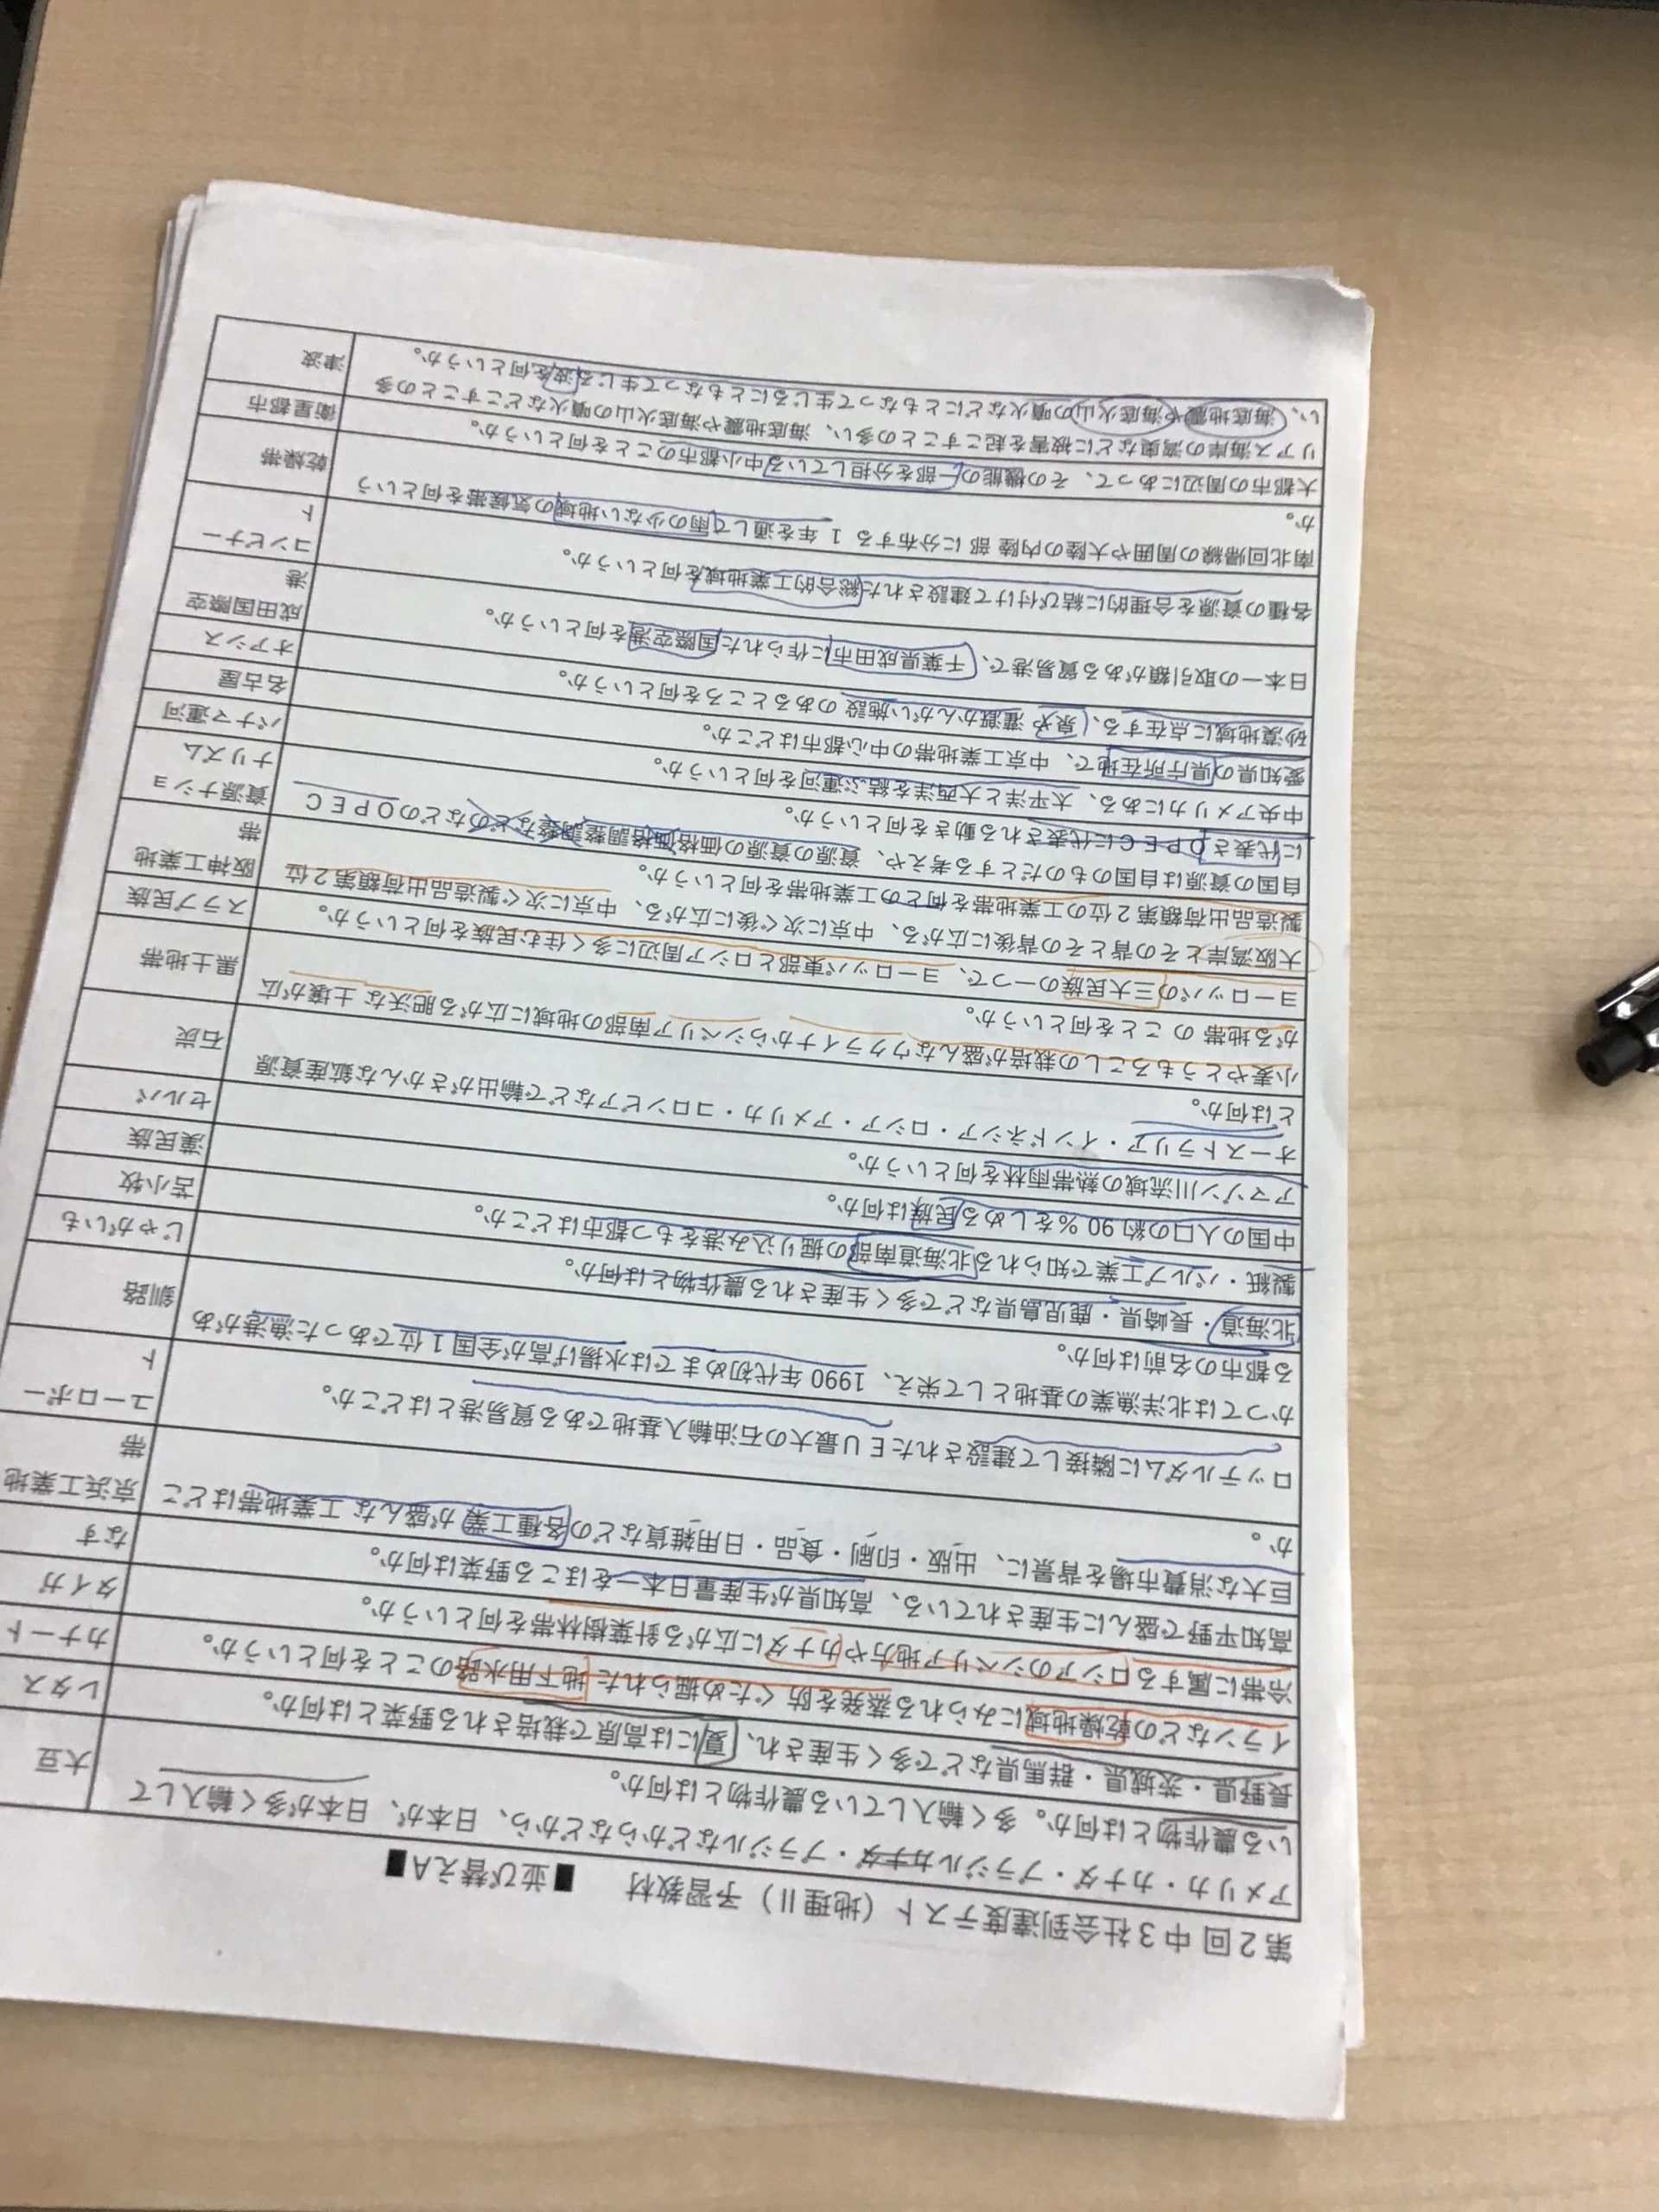 第２回 中３社会到達度テスト（地理Ⅱ） 予習教材 ■並び替えA■
アメリカ・カナダ・ブラジルカナダ・ブラジルなどからなどから、日本が、日本が多く輸入して
いる農作物とは何か。多く輸入している農作物とは何か。
大豆
長野県・茨城県・群馬県などで多く生産され、夏には高原で栽培される野菜とは何か。
レタス
イランなどの乾燥地域にみられる蒸発を防ぐため掘られた地下用水路のことを何というか。
カナート
冷帯に属するロシアのシベリア地方やカナダに広がる針葉樹林帯を何というか。
タイガ
高知平野で盛んに生産されている、高知県が生産量日本一をほこる野菜は何か。
なす
巨大な消費市場を背景に、出版・印刷・食品・日用雑貨などの各種工業が盛んな工業地帯はどこ
か。
京浜工業地
帯
ロッテルダムに隣接して建設されたＥＵ最大の石油輸入基地である貿易港とはどこか。
ユーロポー
ト
かつては北洋漁業の基地として栄え、1990 年代初めまでは水揚げ高が全国１位であった漁港があ
る都市の名前は何か。
釧路
北海道・長崎県・鹿児島県などで多く生産される農作物とは何か。
じゃがいも
製紙・パルプ工業で知られる北海道南部の掘り込み港をもつ都市はどこか。
苫小牧
中国の人口の約 90 %をしめる民族は何か。
漢民族
アマゾン川流域の熱帯雨林を何というか。
セルバ
オーストラリア・インドネシア・ロシア・アメリカ・コロンビアなどで輸出がさかんな鉱産資源
とは何か。
石炭
小麦やとうもろこしの栽培が盛んなウクライナからシベリア南部の地域に広がる肥沃な土壌が広
がる地帯 の ことを何というか。
黒土地帯
ヨーロッパの三大民族の一つで、ヨーロッパ東部とロシア周辺に多く住む民族を何というか。
スラブ民族
大阪湾岸とその背とその背後に広がる、中京に次ぐ後に広がる、中京に次ぐ製造品出荷額第２位
製造品出荷額第２位の工業地帯を何との工業地帯を何というか。
阪神工業地
帯
自国の資源は自国のものだとする考えや、資源の資源の価格価格調整調整などのなどのＯＰＥＣ
に代表さＯＰＥＣに代表される動きを何というか。
資源ナショ
ナリズム
中央アメリカにある、太平洋と大西洋を結ぶ運河を何というか。
パナマ運河
愛知県の県庁所在地で、中京工業地帯の中心都市はどこか。
名古屋
砂漠地域に点在する、泉や 灌漑かんがい施設 のあるところを何というか。
オアシス
日本一の取引額がある貿易港で、千葉県成田市に作られた国際空港を何というか。
成田国際空
港
各種の資源を合理的に結び付けて建設された総合的工業地域を何というか。
コンビナー
ト
南北回帰線の周囲や大陸の内陸 部 に分布する １ 年を通して雨の少ない地域の気候帯を何という
か。
乾燥帯
大都市の周辺にあって、その機能の一部を分担している中小都市のことを何というか。
衛星都市
リアス海岸の湾奥などに被害を起こすことの多い、海底地震や海底火山の噴火などこすことの多
い、海底地震や海底火山の噴火などにともなって生じるにともなって生じる波を何というか。
津波